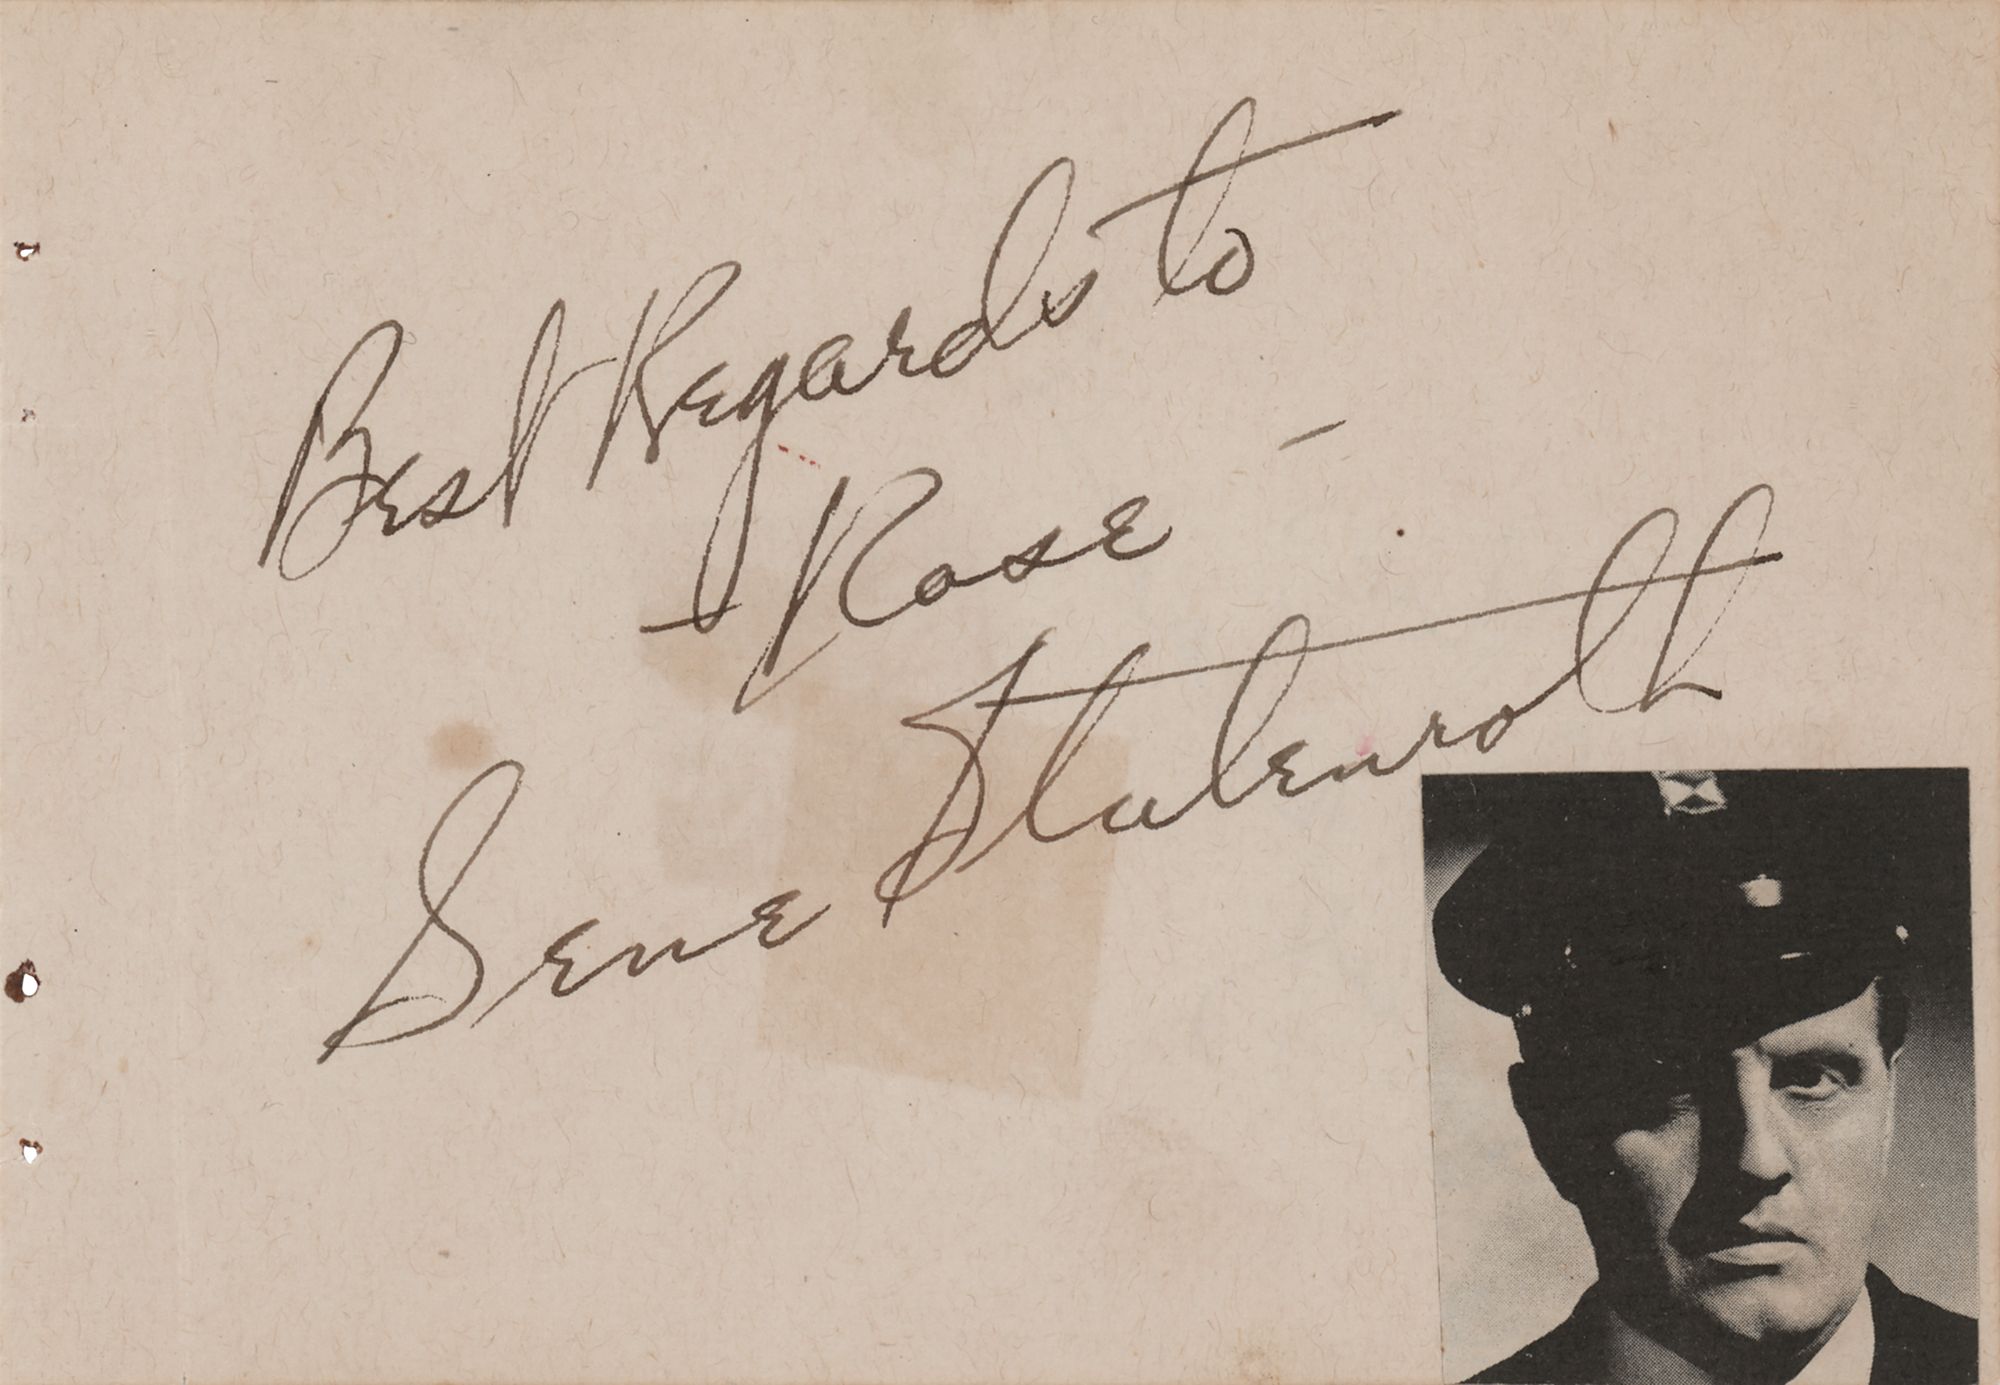 Best Regards to
Rose –
Gene Stutenroth